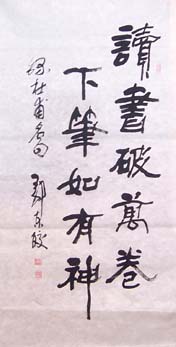 讀書破萬卷
下筆如有神
錄杜甫名句 鄭東俊